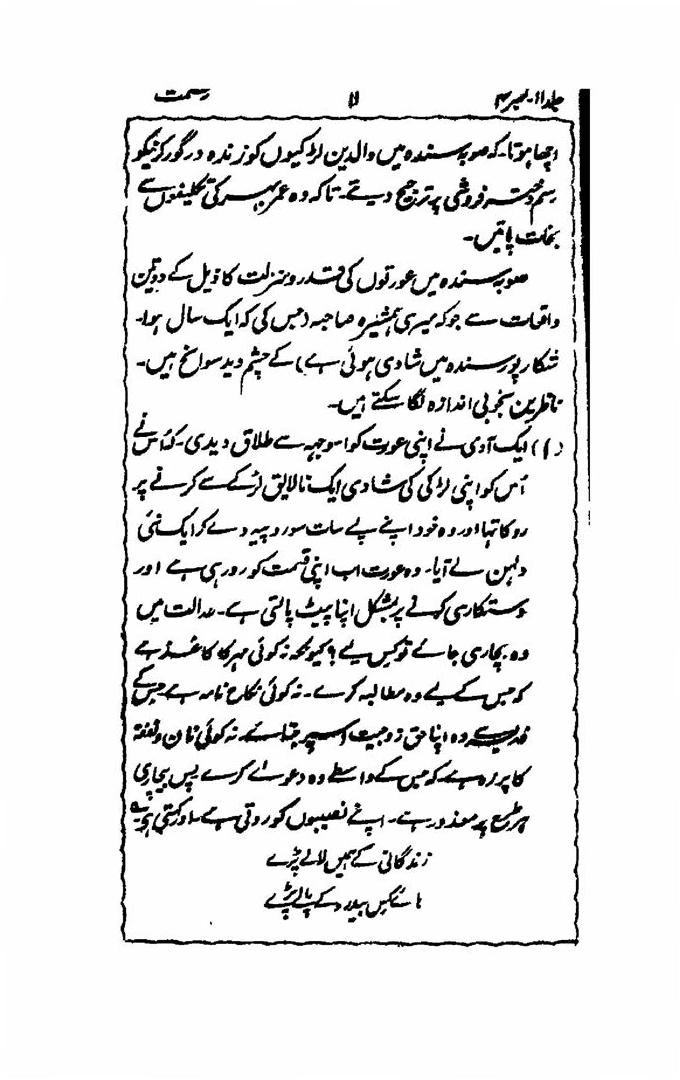 جلد ۱۱۔ نمبر ۴ ۱۱ عصمت
اچھا ہوتا۔ کہ صوبہ سندہ میں والدین لڑکیوں کو زندہ درگور کرنیکو
رسم دختر فروشی پر ترجیح دیتے۔ تاکہ وہ عمر بہر کی تکلیفوں سے
نجات پاتیں۔
صوبہ سندہ میں عورتوں کی قدر و منزلت کا ذیل کے دو تین
واقعات سے جو کہ میری ہمشیرہ صاحبہ (جس کی کہ ایک سال ہوا۔
شکارپور سندہ میں شادی ہوئی ہے) کے چشم دید سوانح ہیں۔
ناظرین بخوبی اندازہ لگا سکتے ہیں۔
(۱) ایک آدمی نے اپنی عورت کو اسوجہہ سے طلاق دیدی۔ کہ اس نے
اُس کو اپنی لڑکی کی شادی ایک نالایق لڑکے سے کرنے پر
روکا تہا اور وہ خود اپنے لیے سات سو روپیہ دے کر ایک نئی
دلہن لے آیا۔ وہ عورت اب اپنی قسمت کو رو رہی ہے اور
دستکاری کرنے پر بمشکل اپنا پیٹ پالتی ہے۔ عدالت میں
وہ بچاری جائے تو کس لیے؟ کیونکہ نہ کوئی مہر کا کاغذ ہے
کہ جس کے لیے وہ مطالبہ کرے۔ نہ کوئی نکاح نامہ ہے جس کے
ذریعے وہ اپنا حق زوجیت اسپر جتائے۔ نہ کوئی نان و نفقہ
کا پرزہ ہے کہ جس کے واسطے وہ دعوےٰ کرے پس بیچاری
ہر طرح پر معذور ہے۔ اپنے نصیبوں کو روتی ہے۔ اور کہتی ہے
زندگانی کے ہمیں لالے پڑے
ہائے کس بیدرد کے پالے پڑے